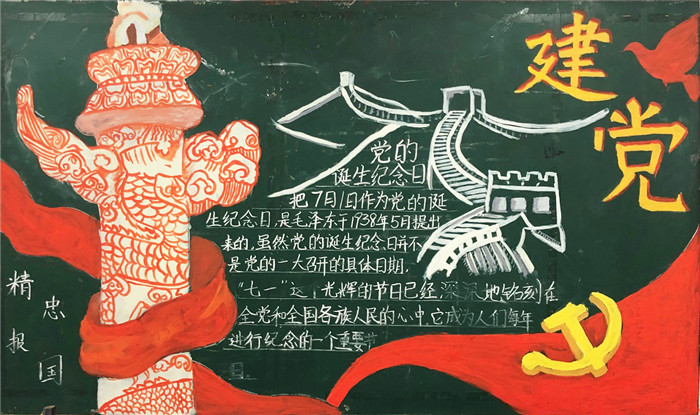 建党
党的
诞生纪念日
把7月1日作为党的诞
生纪念日,是毛泽东于1938年5月提出
来的,虽然党的诞生纪念日并不
是党的一大召开的具体日期,
"七一"这,光辉的节日已经,深深地铭刻在
全党和全国各族人民的心中,它成为人们每年
进行纪念的一个重要节
精忠报国